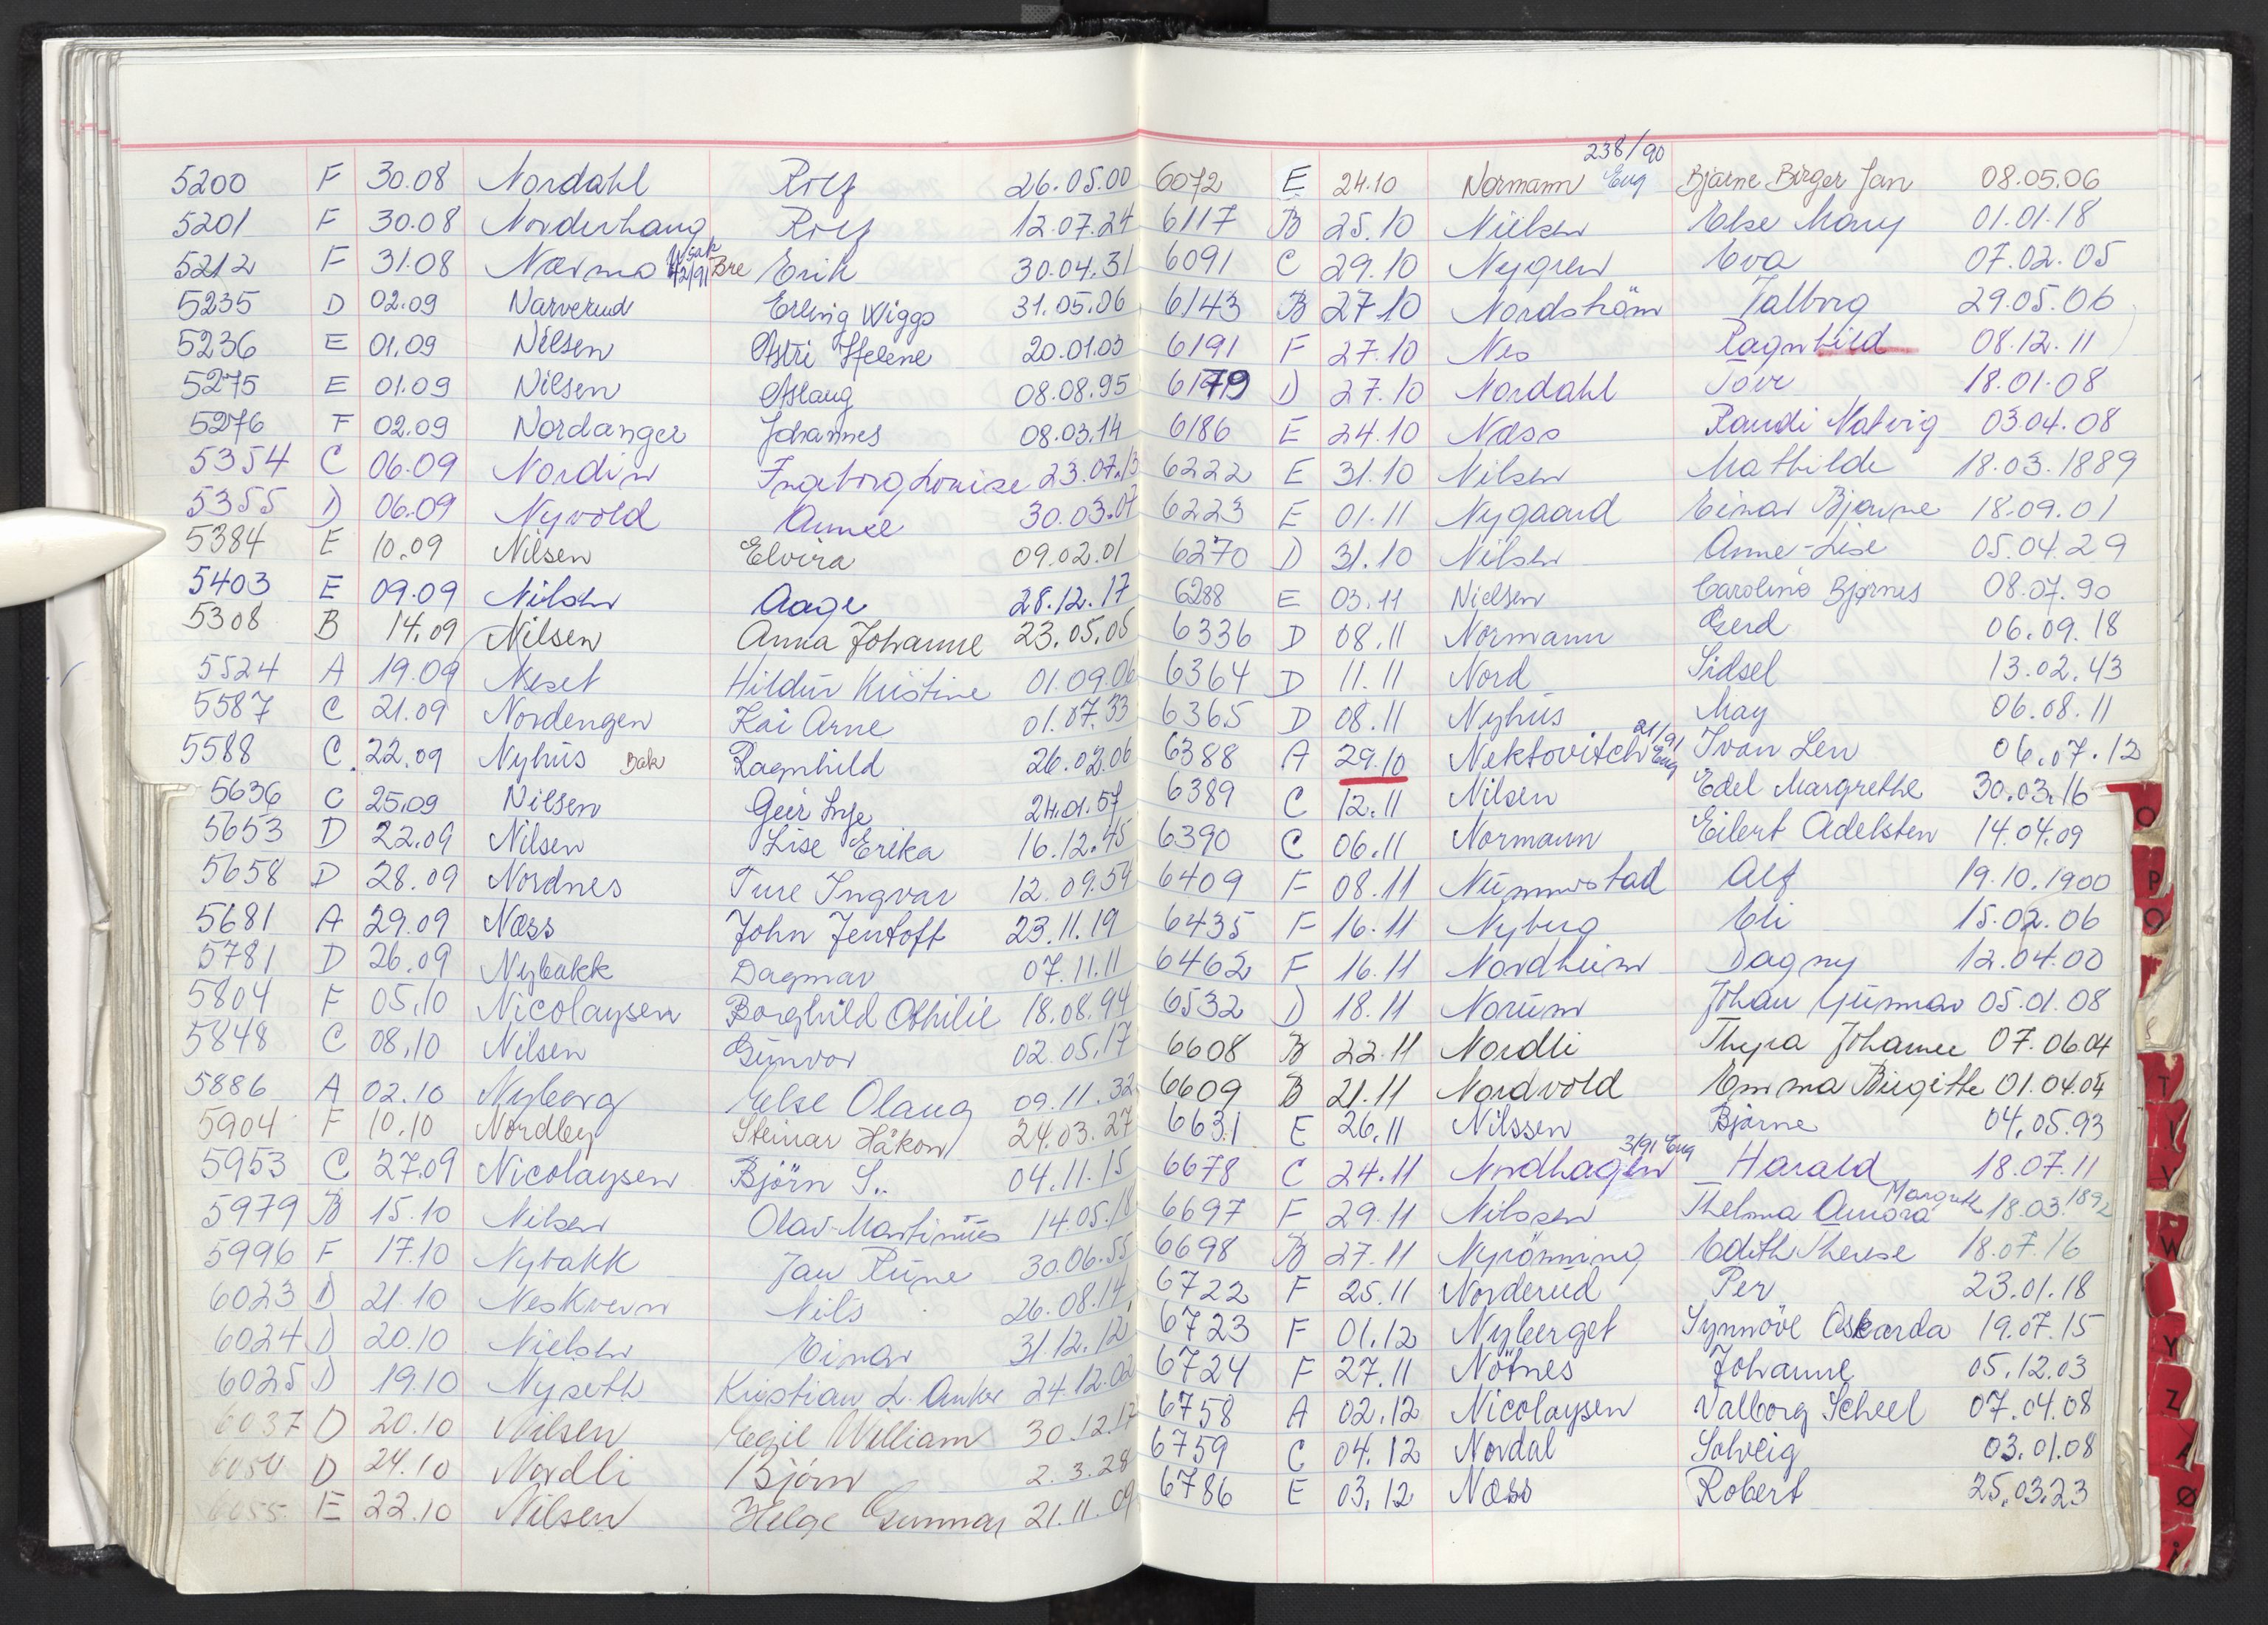 5200 F 30.08 Nordahl Rolf 26.05.00
5201 F 30.08 Norderhaug Rolf 12.07.24
5212 F 31.08 Nærmo Bre Erik 30.04.31
5235 D 02.09 Narverud Erling Wiggo 31.05.06
5236 E 01.09 Nilsen Astri Helene 20.01.03
5275 E 01.09 Nilsen Aslaug 08.08.95
5276 F 02.09 Nordanger Johannes 08.03.14
5354 C 06.09 Nordin Ingeborg Louise 23.07.13
5355 D 06.09 Nyvold Annie 30.03.07
5384 E 10.09 Nilsen Elvira 09.02.01
5403 E 09.09 Nilsen Aage 28.12.17
5308 B 14.09 Nilsen Anna Johanne 23.05.05
5524 A 19.09 Neset Hildur Kristine 01.09.06
5587 C 21.09 Nordengen Kai Arne 01.07.33
5588 C. 22.09 Nyhus Bak Ragnhild 26.02.06
5636 C 25.09 Nilsen Geir Inge 24.01.57
5653 D 22.09 Nilsen Lise Erika 16.12.45
5658 D 28.09 Nordnes Ture Ingvar 12.09.54
5681 A 29.09 Næss John Jentoft 23.11.19
5781 D 26.09 Nybakk Dagmar 07.11.11
5804 F 05.10 Nicolaysen Borghild Othilie 18.08.94
5848 C 08.10 Nilsen Gunvor 02.05.17
5886 A 02.10 Nyberg Else Olaug 09.11.32
5904 F 10.10 Nordby Steinar Håkon 24.03.27
5953 C 27.09 Nicolaysen Björn S.. 04.11.15
5979 B 15.10 Nilsen Olav Martinius 14.05.18
5996 F 17.10 Nybakk Jan Rune 30.06.55
6023 D 21.10 Neskvern Nils 26.08.14
6024 D 20.10 Nielsen Einar 31.12.12
6025 D 19.10 Nyseth Kristian L. Anker 24.12.02
6037 D 20.10 Nilsen Egil William 30.12.17
6050 D 24.10 Nordli Bjørn 2.3.28
6055 E 22.10 Nilsen Helge Gunnar 21.11.09
238/90
6072 E 24.10 Normann Eug Bjarne Birger Jan 08.05.06
6117 B 25.10 Nielsen Else Mary 01.01.18
6091 C 29.10 Nygren Eva 07.02.05
6143 B 27.10 Nordström Valborg 29.05.06
6191 F 27.10 Nes Ragnhild 08.12.11
6179 D 27.10 Nordahl Tove 18.01.08
6186 E 24.10 Næss Randi Natvig 03.04.08
6222 E 31.10 Nilsen Mathilde 18.03.1889
6223 E 01.11 Nygaard Einar Bjarne 18.09.01
6270 D 31.10 Nilsen Anne-Lise 05.04.29
6288 E 03.11 Nielsen Caroline Bjørnes 08.07.90
6336 D 08.11 Normann Gerd 06.09.18
6364 D 11.11 Nord Sidsel 13.02.43
6365 D 08.11 Nyhus May 06.08.11
21/91
6388 A 29.10 Nektovitch Eug Ivan Len 06.07.12
6389 C 12.11 Nilsen Edel Margrethe 30.03.16
6390 C 06.11 Normann Eilert Adelsten 14.04.09
6409 F 08.11 Nummestad Alf 19.10.1900
6435 F 16.11 Nyberg Eli 15.02.06
6462 F 16.11 Nordheim Dagny 12.04.00
6532 D 18.11 Norum Johan Gunnar 05.01.08
6608 B 22.11 Nordli Thyra Johanne 07.06.04
6609 B 21.11 Nordvold Emma Birgitte 01.04.04
6631 E 26.11 Nilssen Bjarne 04.05.93
3/91 Eug
6678 C 24.11 Nordhagen Harald 18.07.11
6697 F 29.11 Nilssen Thelma Amora Margrethe 18.03.1892
6698 B 27.11 Nyrönning Edith Therese 18.07.16
6722 F 25.11 Norderud Per 23.01.18
6723 F 01.12 Nyberget Synnöve Oskarda 19.07.15
6724 F 27.11 Nötnes Johanne 05.12.03
6758 A 02.12 Nicolaysen Valborg Scheel 07.04.08
6759 C 04.12 Nordal Solveig 03.01.08
6786 E 03.12 Næss Robert 25.03.23
O
P
Q
S
T
V
W
Y
Z
Ø
Å